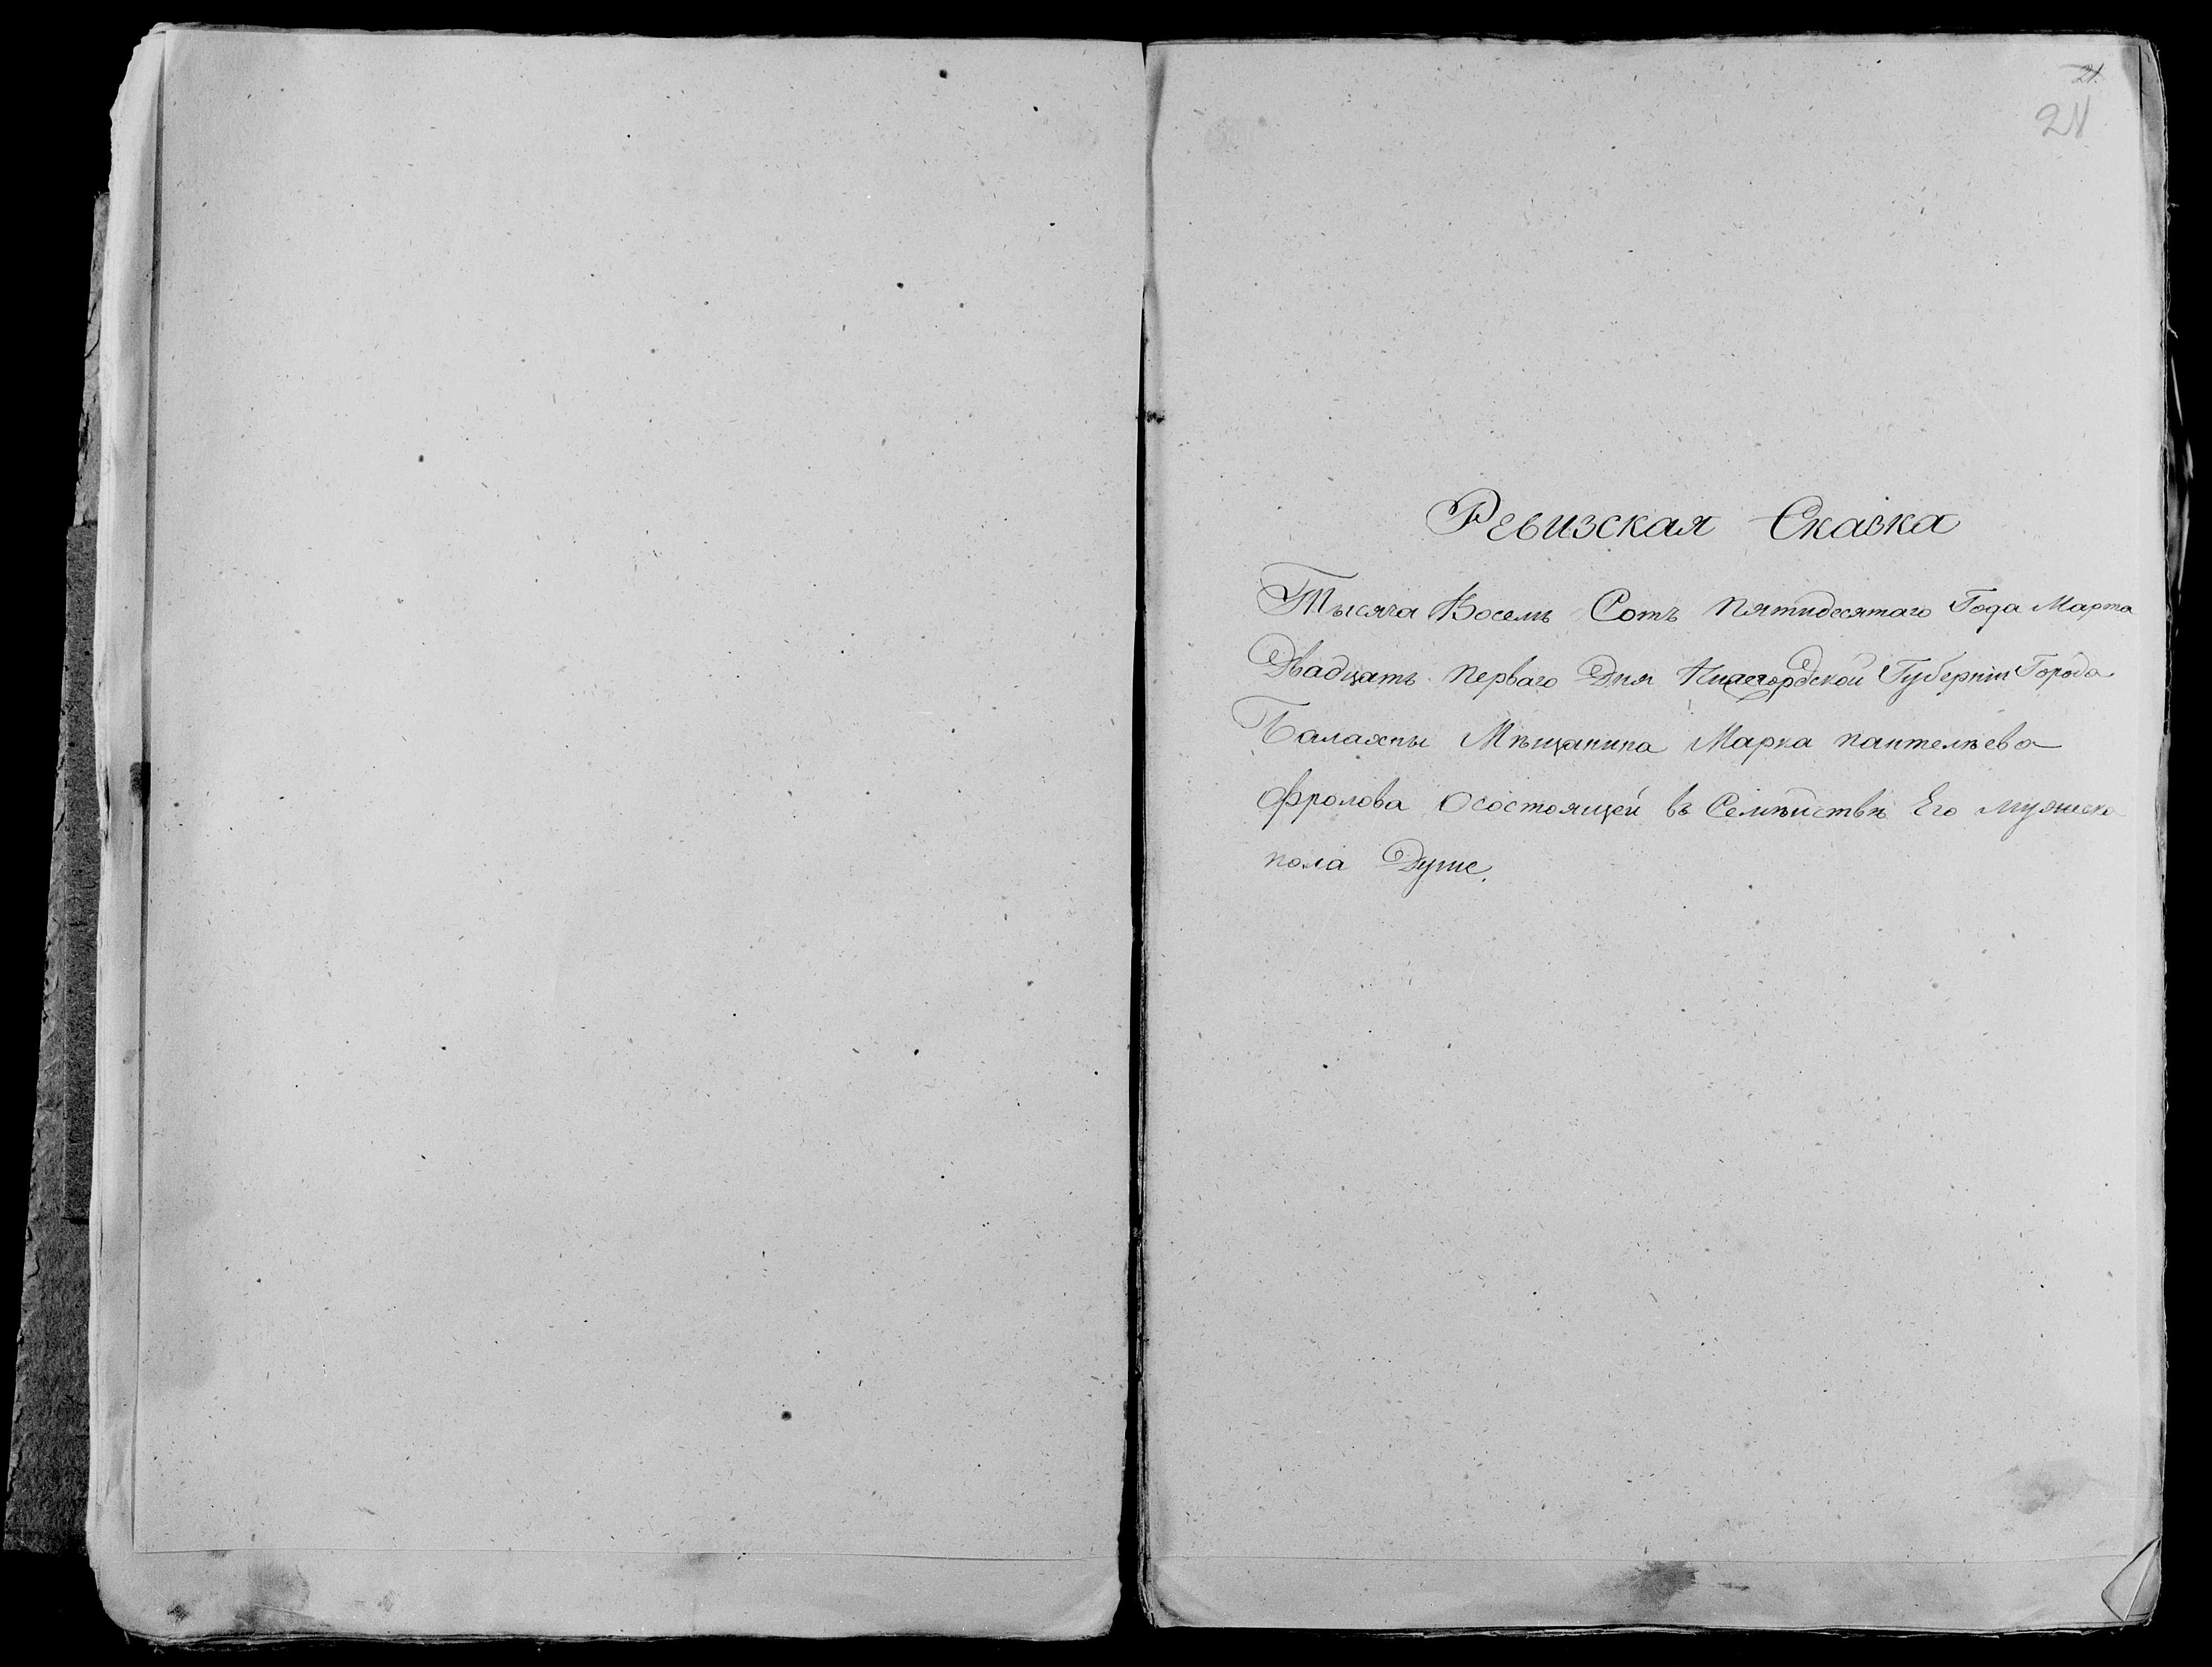 21.
24
Ревизская Сказка
Тысяча Восемь Сотъ пятидесятаго Года Марта
Двадцать перваго Дня Нижегордской Губернiи Города
Балахны Мѣщанина Марка пантелѣева
Фролова Осостоящей въ Семѣйствѣ Его мужеска
пола Душе.